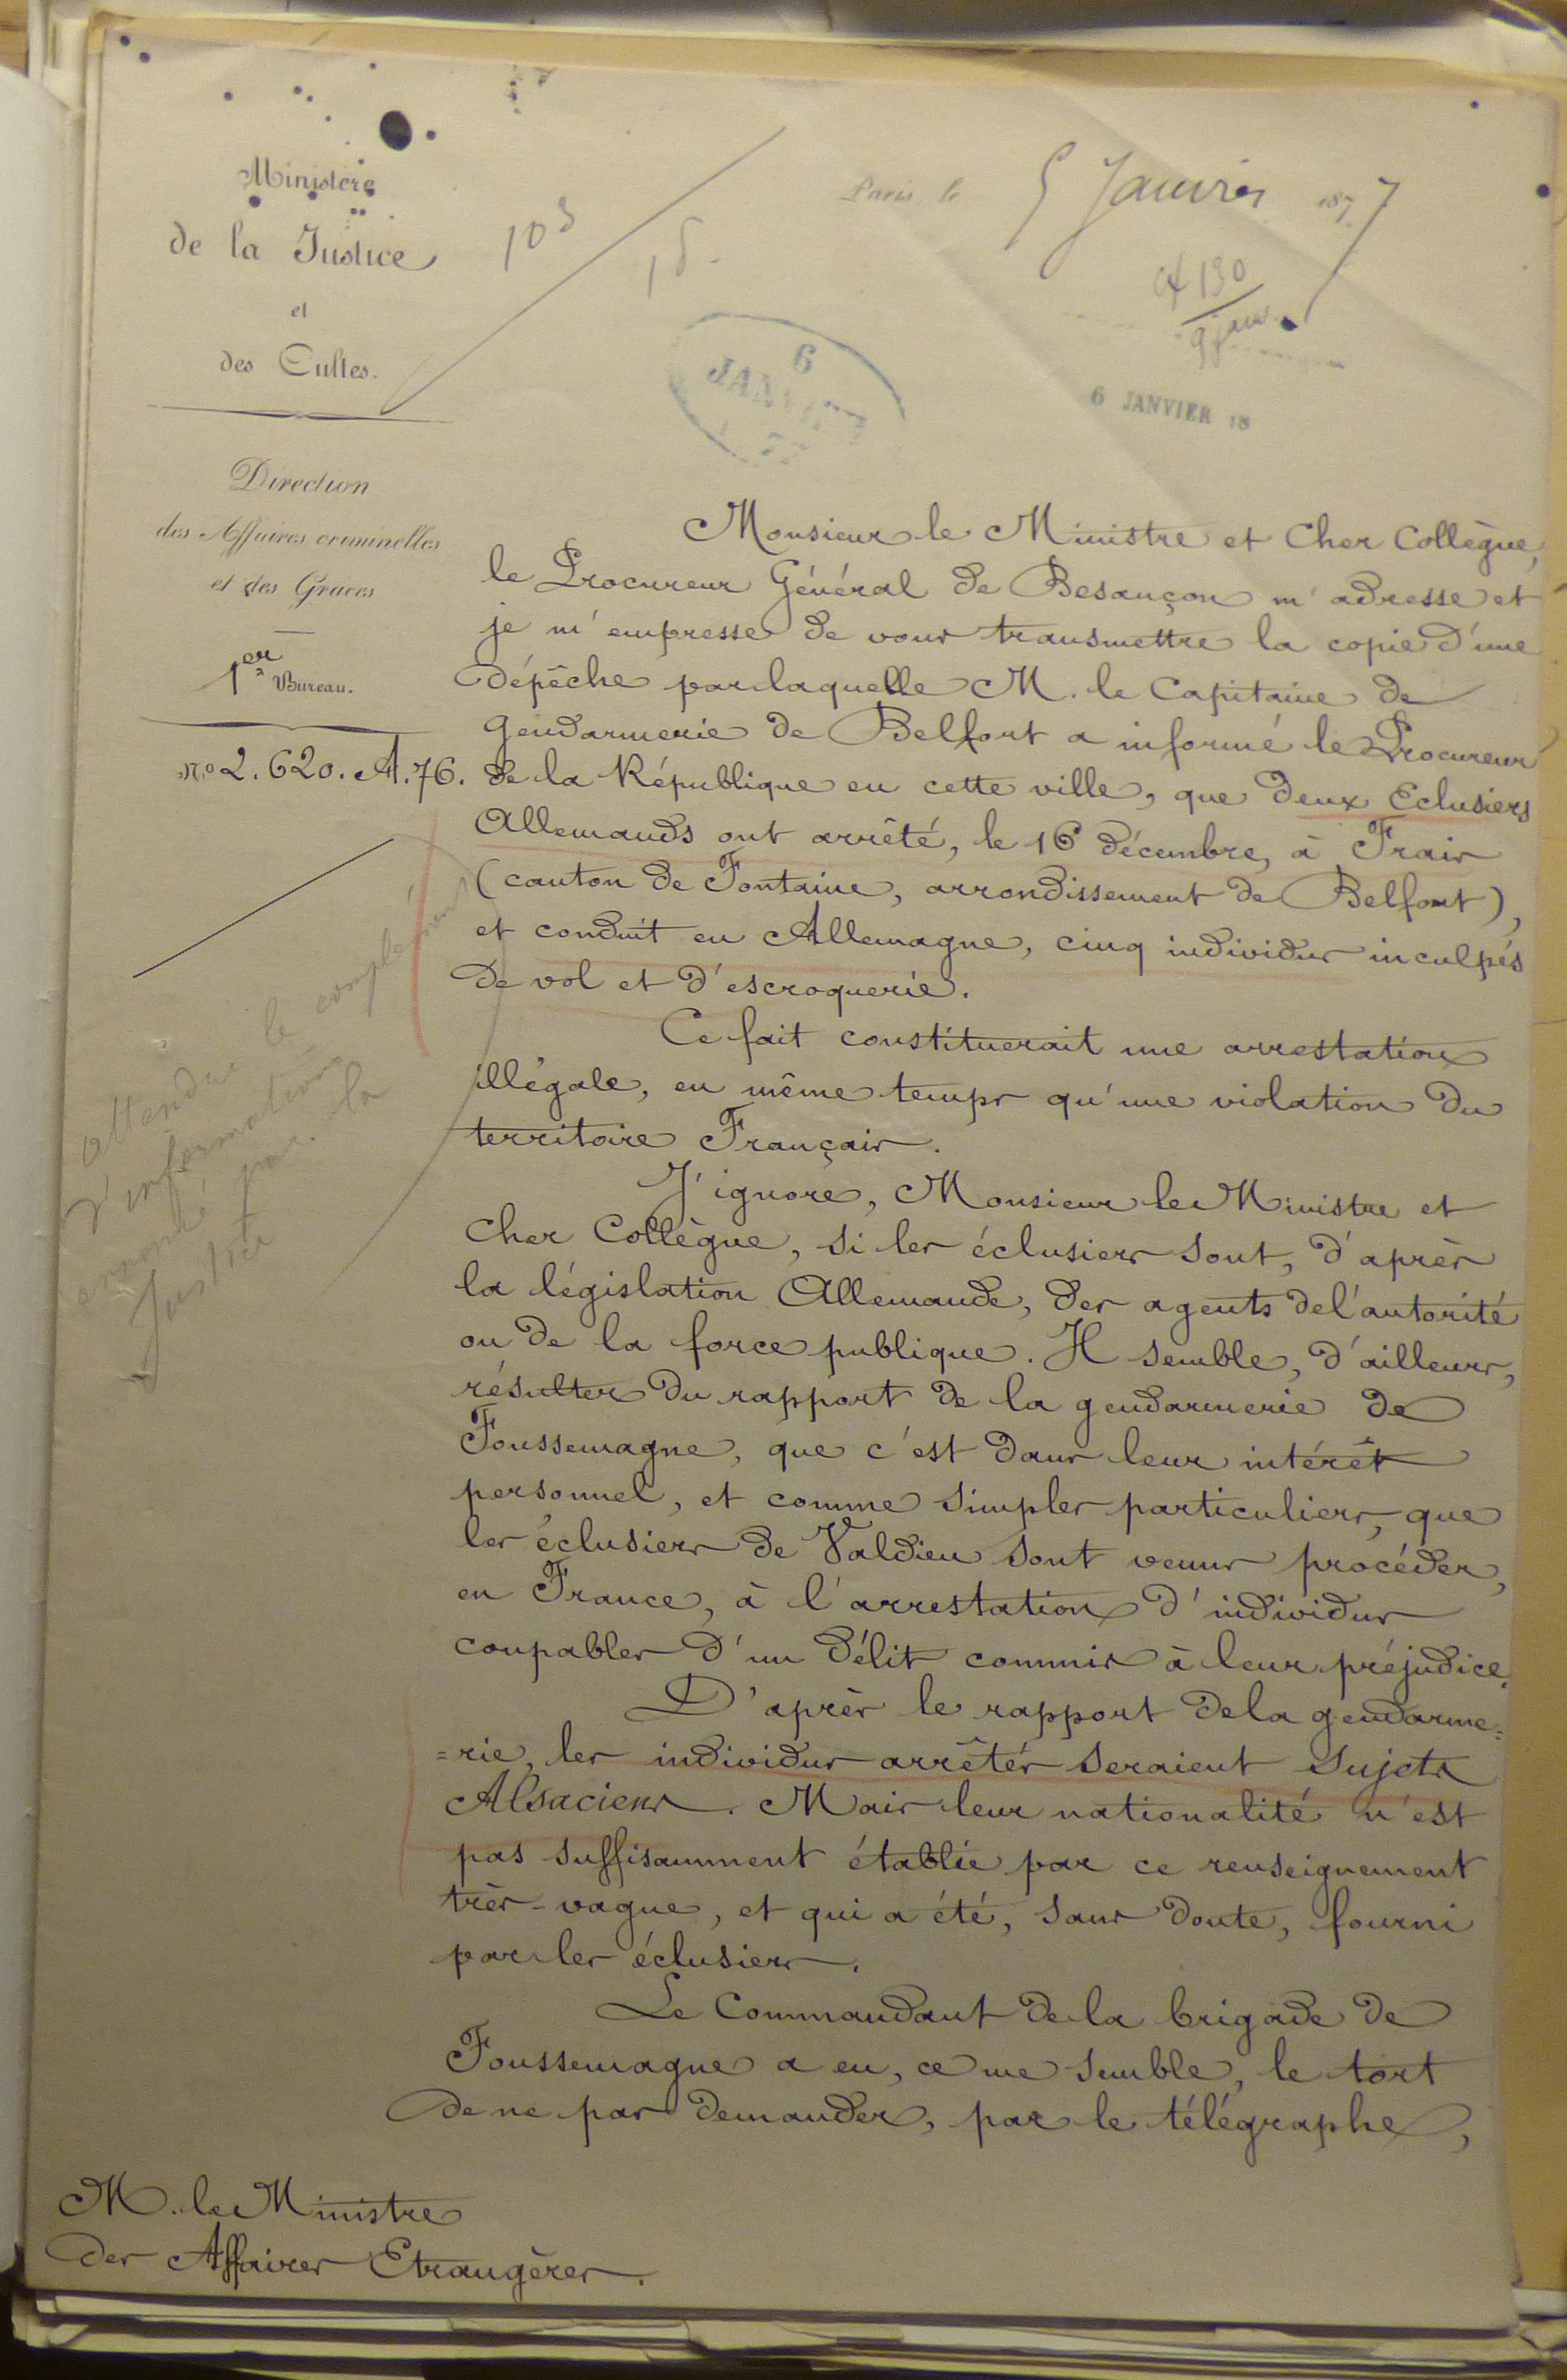 Ministère
de la Justice
et
des Cultes.
Direction
des Affaires criminelles
et des Graces
1er Bureau.
No 2.620.A.76.
103
15.
Paris, le 5 Janvier 1877
190
9 janv.
6
JANVIER
77
6 JANVIER 18
Monsieur le Ministre et Cher Collègue,
le Procureur Général de Besançon m'adresse et
je m'empresse de vous transmettre la copie d'une
dépêche par laquelle M. le Capitaine de
gendarmerie de Belfort a informé le Procureur
de la République en cette ville, que deux Eclusiers
Allemands ont arrêté, le 16 décembre, à Frais
(canton de Fontaine, arrondissement de Belfort),
et conduit en Allemagne, cinq individus inculpés
de vol et d'escroquerie.
Ce fait constituerait une arrestation
illégale, en même temps qu'une violation du
territoire Français.
J'ignore, Monsieur le Ministre et
Cher Collègue, si les éclusiers sont, d'après
la législation Allemande, des agents de l'autorité
ou de la force publique. Il semble, d'ailleurs,
résulter du rapport de la gendarmerie de
Foussemagne, que c'est dans leur intérêt
personnel, et comme simples particuliers, que
les éclusiers de Valdieu sont venus procéder,
en France, à l'arrestation d'individus
coupables d'un délit commis à leur préjudice.
D'après le rapport de la gendarme=
=rie, les individus arrêtés seraient sujets
Alsaciens. Mais leur nationalité n'est
pas suffisamment établie par ce renseignement
très-vague, et qui a été, sans doute, fourni
par les éclusiers.
Le Commandant de la brigade de
Foussemagne a eu, ce me semble, le tort
de ne pas demander, par le télégraphe,
attendre le complément
d'information
annoncé par la
Justice
M. le Ministre
des Affaires Etrangères.